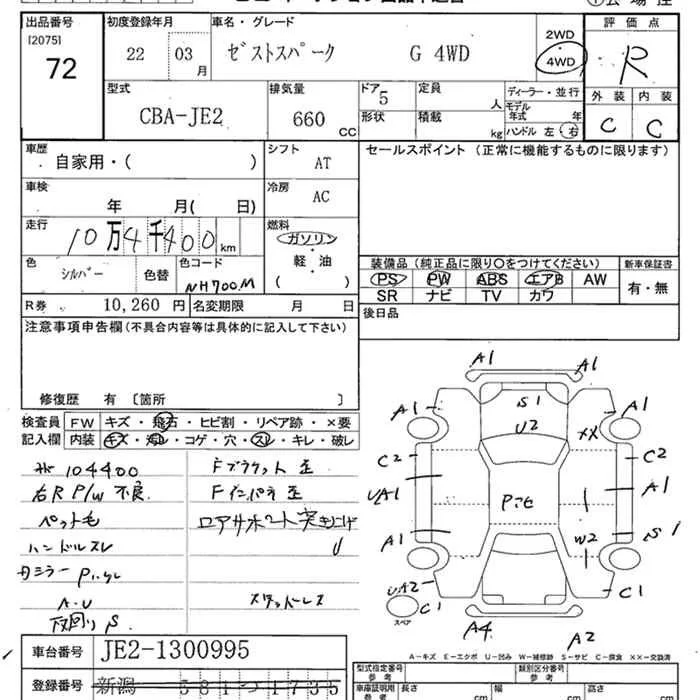 出品番号 初度登録年月 車名・グレード 2WD 評価点
[2075]
72 22 03月 ゼストスパーク G 4WD 4WD R
型式 排気量 ドア 定員 ディーラー・並行 外装 内装
CBA-JE2 660CC 5 人 モデル年式 年 C C
形状 積載 kg ハンドル 左・右
車歴 シフト セールスポイント (正常に機能するものに限ります)
自家用・( ) AT
車検 冷房
年 月( 日) AC
走行 燃料
10万4千400km ガソリン
軽・油
( )
色 色替 色コード 装備品(純正品に限り○をつけてください) 新車保証書
シルバー NH700M PS PW ABS エアB AW 有・無
SR ナビ TV カワ
R券 10,260円 名変期限 月 日 後日品
注意事項申告欄(不具合内容等は具体的に記入して下さい)
修復歴 有 〔箇所 〕
検査員 FW キズ・飛石・ヒビ割・リペア跡・×要
記入欄 内装 キズ・汚れ・コゲ・穴・スレ・キレ・破レ
104400
右R P/W 不良
ペット毛
ハンドルスレ
A.U
Fブラケット歪
Fインパネ歪
ロアサポート突き上げ
スタッドレス
A1 A1
A1 S1 A1
U2 XX
C2 C2
UA1 Pこセ A1
A1 W2 S1
UA2 C1 C1
スペア
A4 A2
A-キズ E-エクボ U-凹み W-補修跡 S-サビ C-腐食 ××-交換済
車台番号 JE2-1300995
登録番号 新潟 581 つ 1735
型式指定番号 類別区分番号
参考 参考
車庫証明用 長さ 幅 高さ
参考 cm cm cm